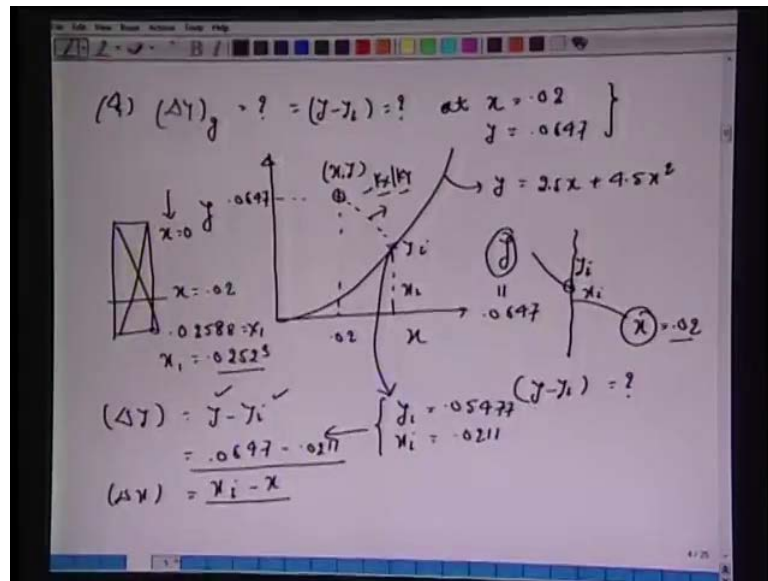 (4) (ΔY)g = ? = (y-yi) = ? at x = .02
y = .0647
(x,y)
kx/ky
y = 2.5x + 4.5x²
.0647
y
x=0
yi
xi
x = .02
.02
x
.02588 = x1
x1 = .02523
y
=
.0647
yi
xi
x = .02
(y-yi) = ?
(ΔY) = y - yi
= .0647 - .0211
yi = .05477
xi = .0211
(Δx) = xi - x
4/25